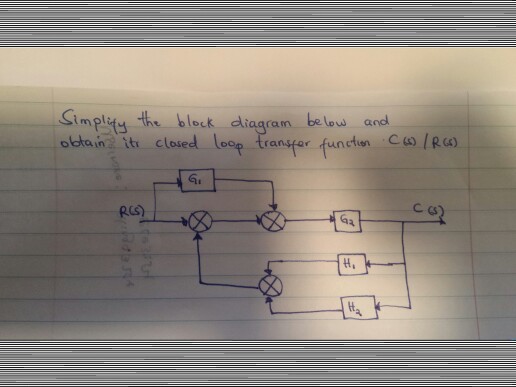 Simplify the block diagram below and
obtain its closed loop transfer function C(s) / R(s)
G1
R(s)
G2
C(s)
H1
H2